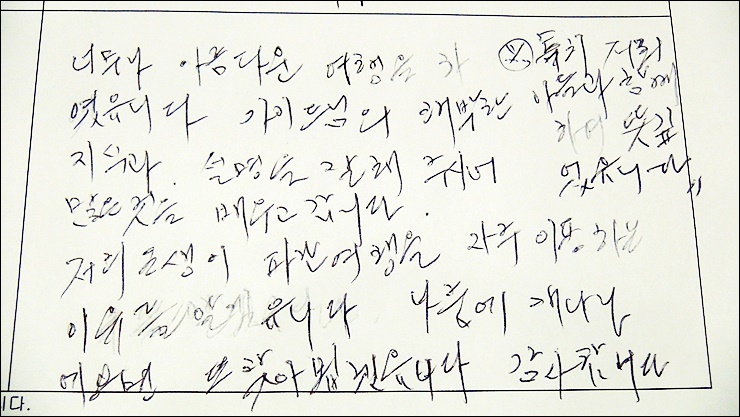 너무나 아름다운 여행을 하
였읍니다 가이드님의 해박한
지식과 설명을 잘해 주셔서
많은것을 배우고 갑니다.
저희 동생이 파란여행을 자주 이용하는
이유를 알겠읍니다 다음에 캐나다
에오면 또 찾아 뵙겠읍니다 감사합니다
※ 특히 저희
아들과 함께
하여 뜻깊
었읍니다
니다.